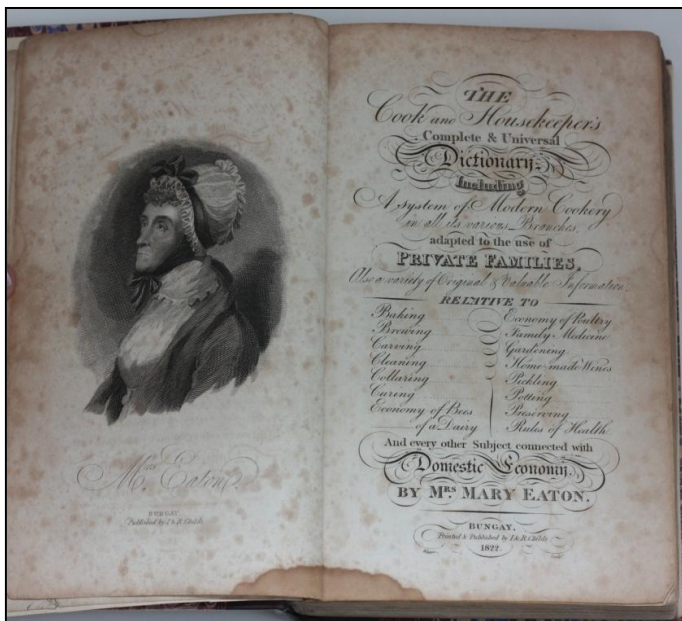 Mrs. Eaton.
BUNGAY.
Published by J. & R. Childs.
THE
Cook and Housekeeper's
Complete & Universal
Dictionary;
Including
A system of Modern Cookery
in all its various Branches,
adapted to the use of
PRIVATE FAMILIES,
Also a variety of Original & Valuable Information,
RELATIVE TO
Baking
Brewing
Carving
Cleaning
Collaring
Curing
Economy of Bees
of a Dairy
Economy of Poultry
Family Medicine
Gardening
Home-made Wines
Pickling
Potting
Preserving
Rules of Health
And every other Subject connected with
Domestic Economy.
BY MRS MARY EATON.
BUNGAY,
Printed & Published by J. & R. Childs
1822.